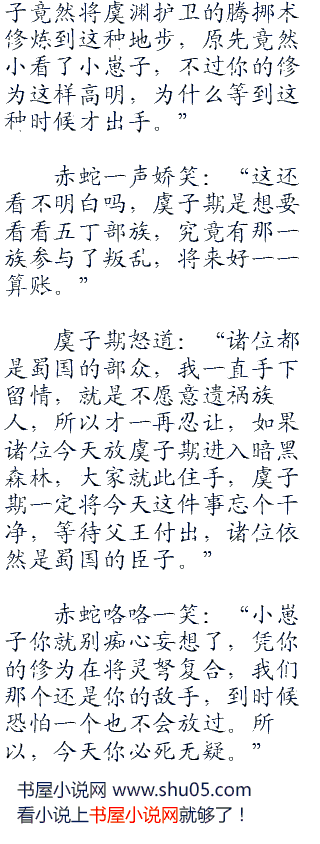 子竟然将虞渊护卫的腾挪术
修炼到这种地步，原先竟然
小看了小崽子，不过你的修
为这样高明，为什么等到这
种时候才出手。”
赤蛇一声娇笑：“这还
看不明白吗，虞子期是想要
看看五丁部族，究竟有那一
族参与了叛乱，将来好一一
算账。”
虞子期怒道：“诸位都
是蜀国的部众，我一直手下
留情，就是不愿意遗祸族
人，所以才一再忍让，如果
诸位今天放虞子期进入暗黑
森林，大家就此住手，虞子
期一定将今天这件事忘个干
净，等待父王付出，诸位依
然是蜀国的臣子。”
赤蛇咯咯一笑：“小崽
子你就别痴心妄想了，凭你
的修为在将灵弩复合，我们
那个还是你的敌手，到时候
恐怕一个也不会放过。所
以，今天你必死无疑。”
书屋小说网 www.shu05.com
看小说上书屋小说网就够了！